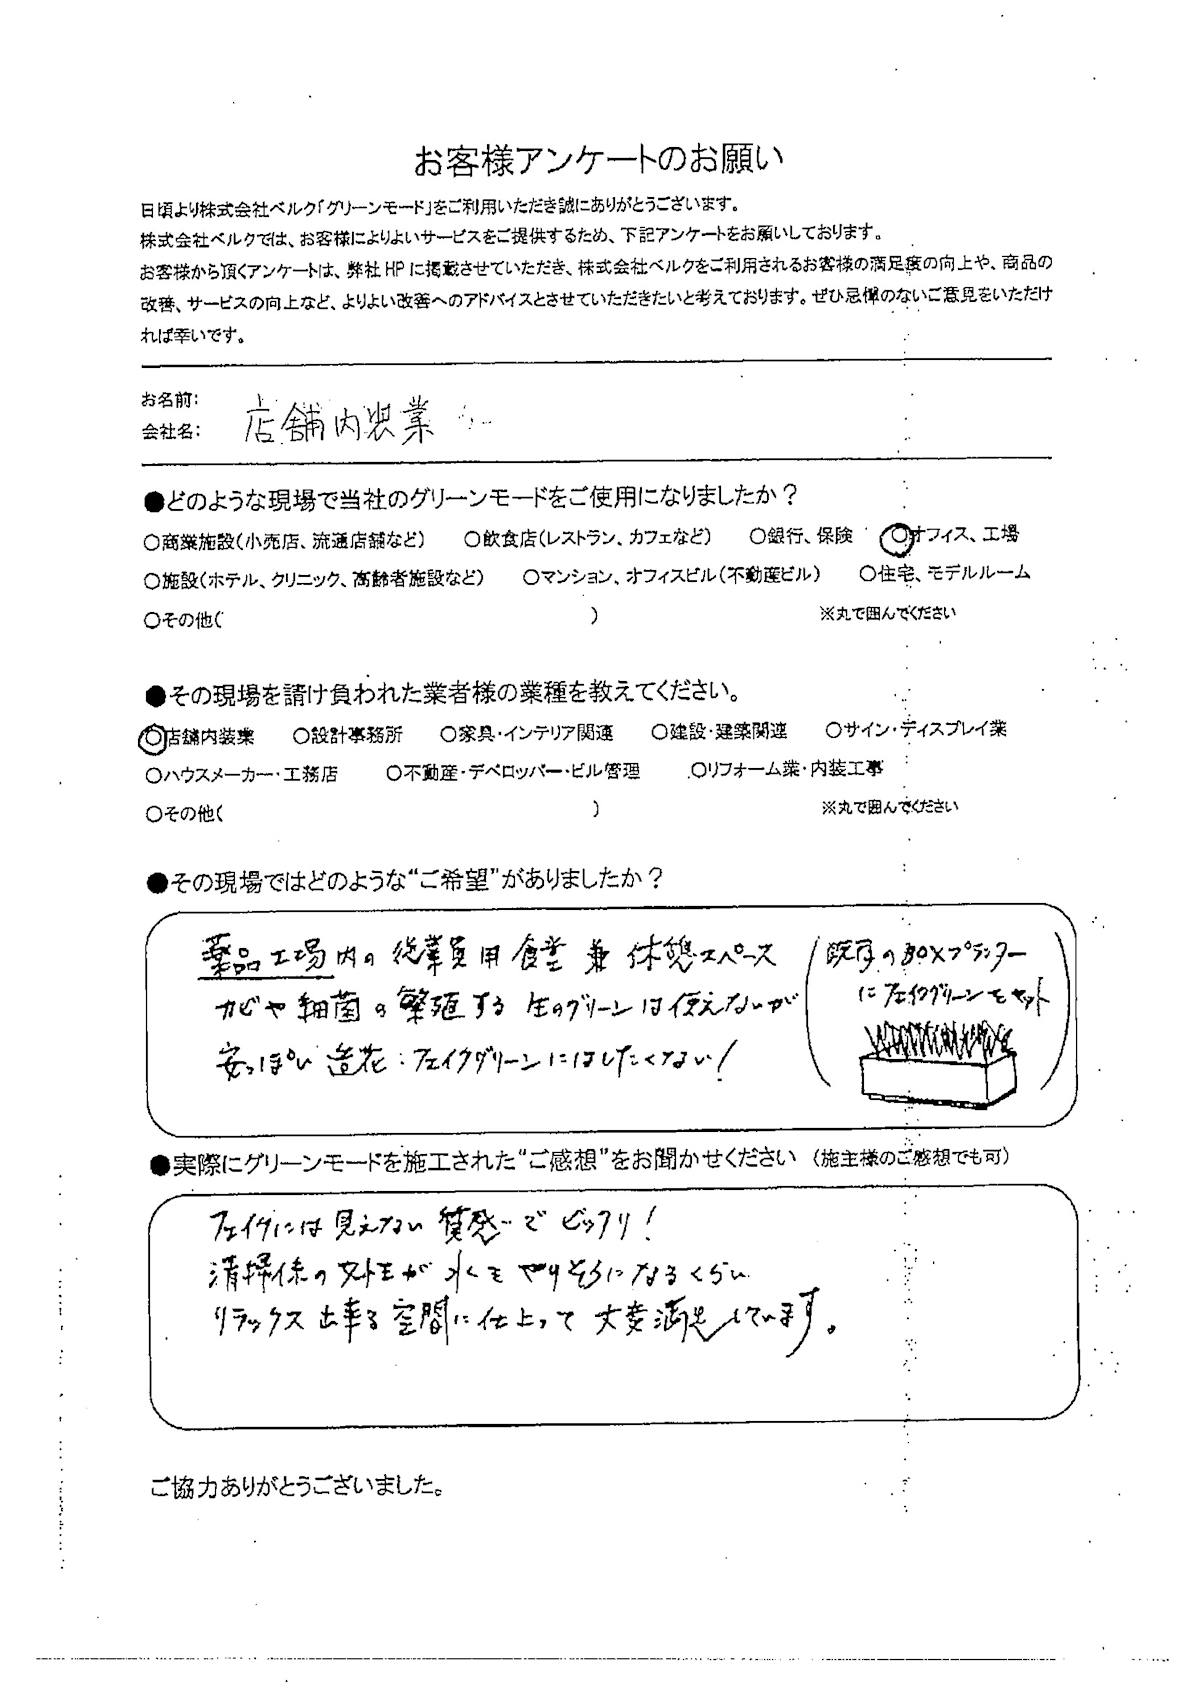 お客様アンケートのお願い
日頃より株式会社ベルク「グリーンモード」をご利用いただき誠にありがとうございます。
株式会社ベルクでは、お客様によりよいサービスをご提供するため、下記アンケートをお願いしております。
お客様から頂くアンケートは、弊社HPに掲載させていただき、株式会社ベルクをご利用されるお客様の満足度の向上や、商品の
改善、サービスの向上など、よりよい改善へのアドバイスとさせていただきたいと考えております。ぜひ忌憚のないご意見をいただけ
れば幸いです。
お名前:
会社名: 店舗内装業
●どのような現場で当社のグリーンモードをご使用になりましたか？
○商業施設(小売店、流通店舗など) ○飲食店(レストラン、カフェなど) ○銀行、保険 ○オフィス、工場
○施設(ホテル、クリニック、高齢者施設など) ○マンション、オフィスビル(不動産ビル) ○住宅、モデルルーム
○その他( ) ※丸で囲んでください
●その現場を請け負われた業者様の業種を教えてください。
○店舗内装業 ○設計事務所 ○家具・インテリア関連 ○建設・建築関連 ○サイン・ディスプレイ業
○ハウスメーカー・工務店 ○不動産・デベロッパー・ビル管理 ○リフォーム業・内装工事
○その他( ) ※丸で囲んでください
●その現場ではどのような“ご希望”がありましたか？
薬品工場内の従業員用食堂兼休憩スペース
カビや細菌の繁殖する生のグリーンは使えないが
安っぽい造花・フェイクグリーンにはしたくない！
(既存のBOXプランター
にフェイクグリーンをセット)
●実際にグリーンモードを施工された“ご感想”をお聞かせください (施主様のご感想でも可)
フェイクには見えない質感でビックリ！
清掃係の女性が水をやりそうになるくらい
リラックス出来る空間に仕上って大変満足しています。
ご協力ありがとうございました。